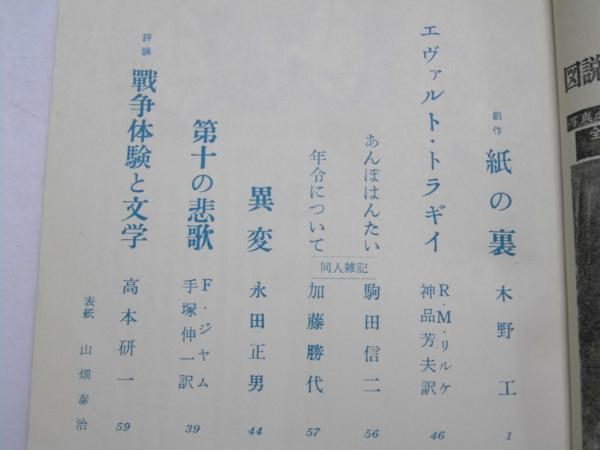 創作 紙の裏 木野工 1
エヴァルト・トラギイ R・M・リルケ 神品芳夫訳 46
あんぽはんたい 駒田信二 56
同人雑記
年令について 加藤勝代 57
異変 永田正男 44
第十の悲歌 F・ジャム 手塚伸一訳 39
評論 戰争体験と文学 高本研一 59
表紙 山畑泰治
図説